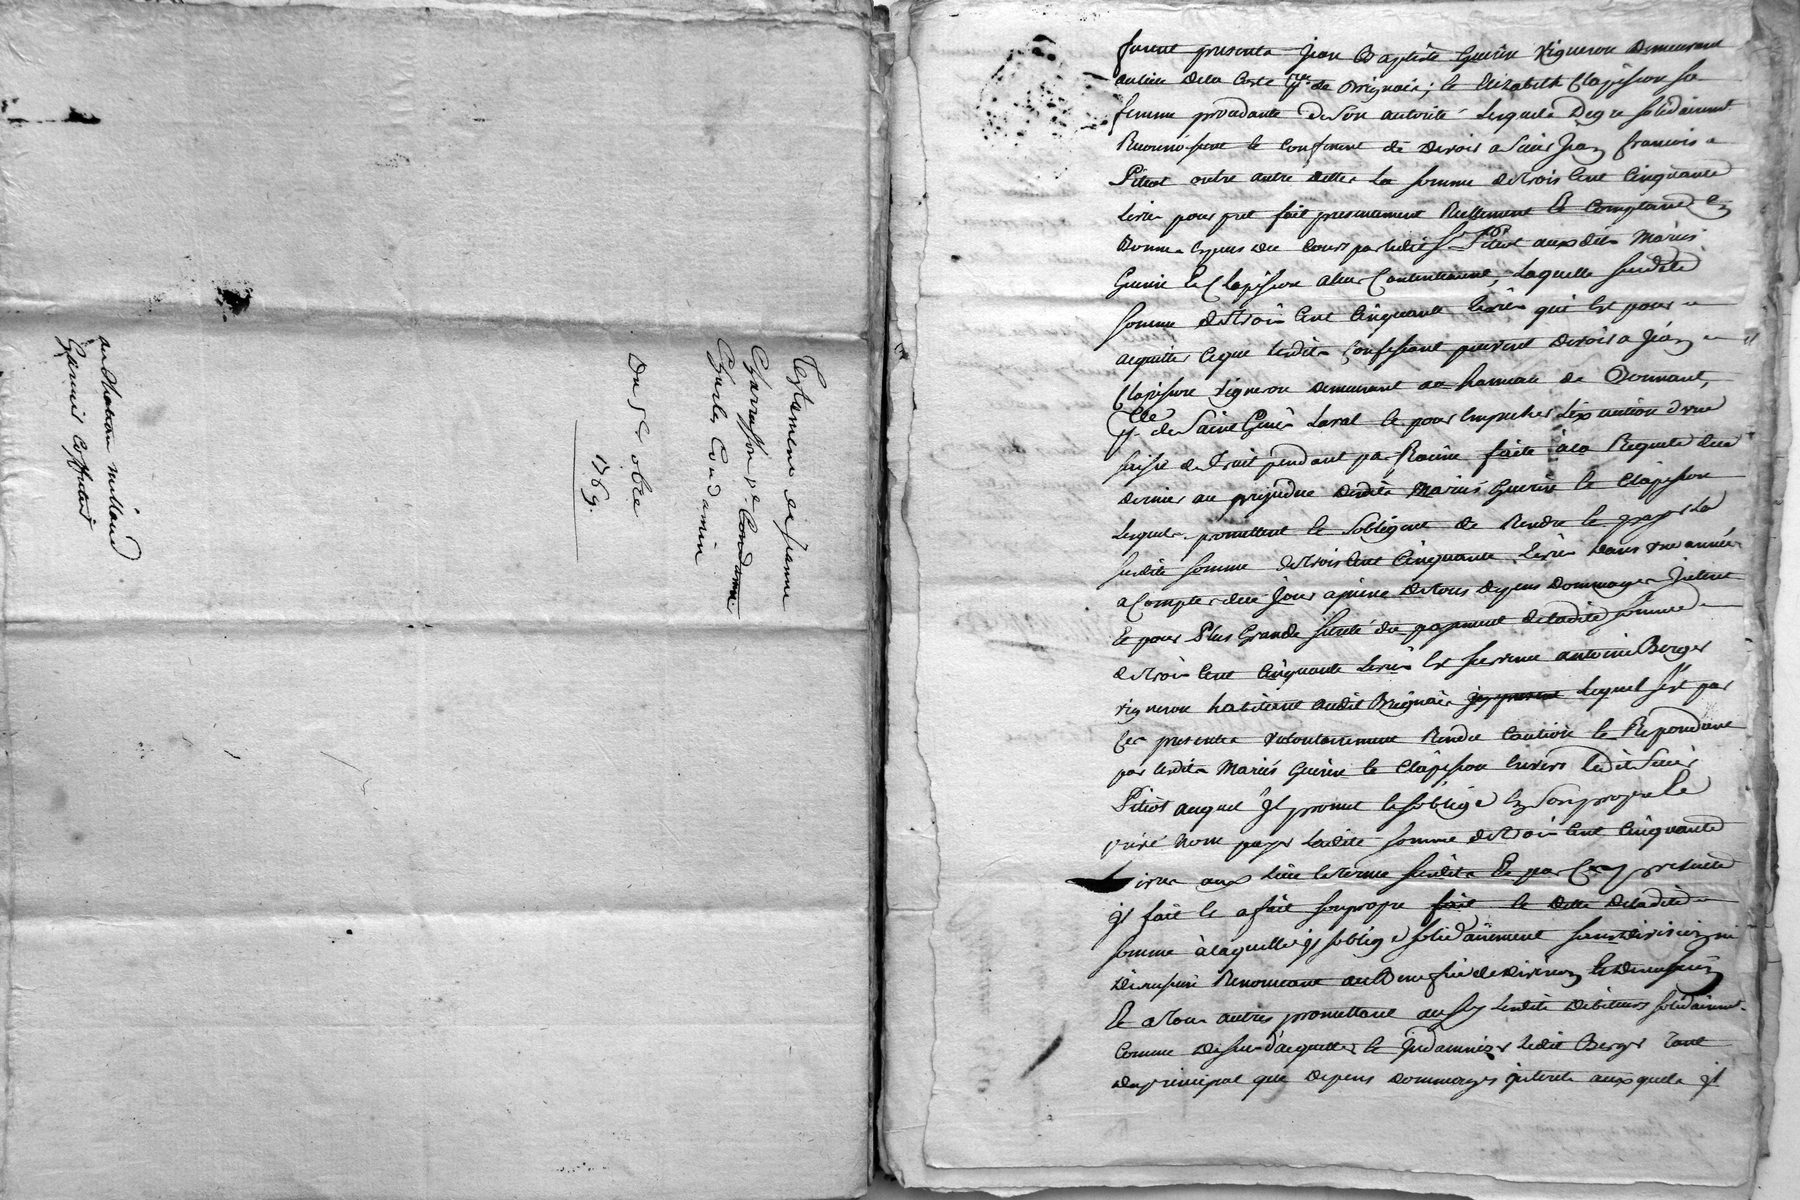 Testament de jeanne
Charrasson ve Condamin
Charles Condamin
Du 5e 8bre
1769.
au Chateau
furent presents jean Baptiste Guerin Vigneron demeurant
au lieu dela Coste psse de Brignais; et Elizabeth Clapisson sa
femme procedante de son autorité lesquels de gre solidairement
Reconnoissent et confessent de devoir a Sieur jean françois
Pitiot outre autre dette la somme de trois cent cinquante
Livres pour pret fait presentement Reellement et Comptant en
Bonnes especes du cours par ledit Sr Pitiot auxdits Mariés
Guerin et Clapisson a leur Contentement, laquelle susdite
somme de trois cent cinquante livres qui est pour
acquitter ce que lesdits Confessant peuvent devoir a jean
Clapisson vigneron demeurant au hameau de Bonnant,
psse de Saint Genis Laval et pour empecher lexecution d'une
saisie de fruit pendant par Racine faite a la Requete dece
dernier au prejudice desdits Mariés Guerin et Clapisson
lesquels promettent et s'obligent de Rendre et payer la
susdite somme de trois cent cinquante livres dans une année
a compter de ce jour a peine de tous depens dommages interets
Et pour Plus Grande sureté du payement de ladite somme
de trois cent cinquante livres est survenu antoine Berger
vigneron habitant audit Brignais lequel s'est par
ces presentes volontairement Rendu caution et Repondant
par lesdits Mariés Guerin et Clapisson envers ledit Sieur
Pitiot auquel il promet et s'oblige en son propre et
privé nom payer ladite somme de trois cent cinquante
Livres aux lieu et terme susdits Et par ces presentes
il fait et a fait son propre fait et dette de ladite
somme à laquelle il s'oblige solidairement sans division ni
discussion Renonceant au Benefice de division et discussion
Et a tous autres promettant aussy lesdits debiteurs solidairement
comme dessus d'acquitter et indamniser ledit Berger tant
du principal que depens dommages interets auxquels il